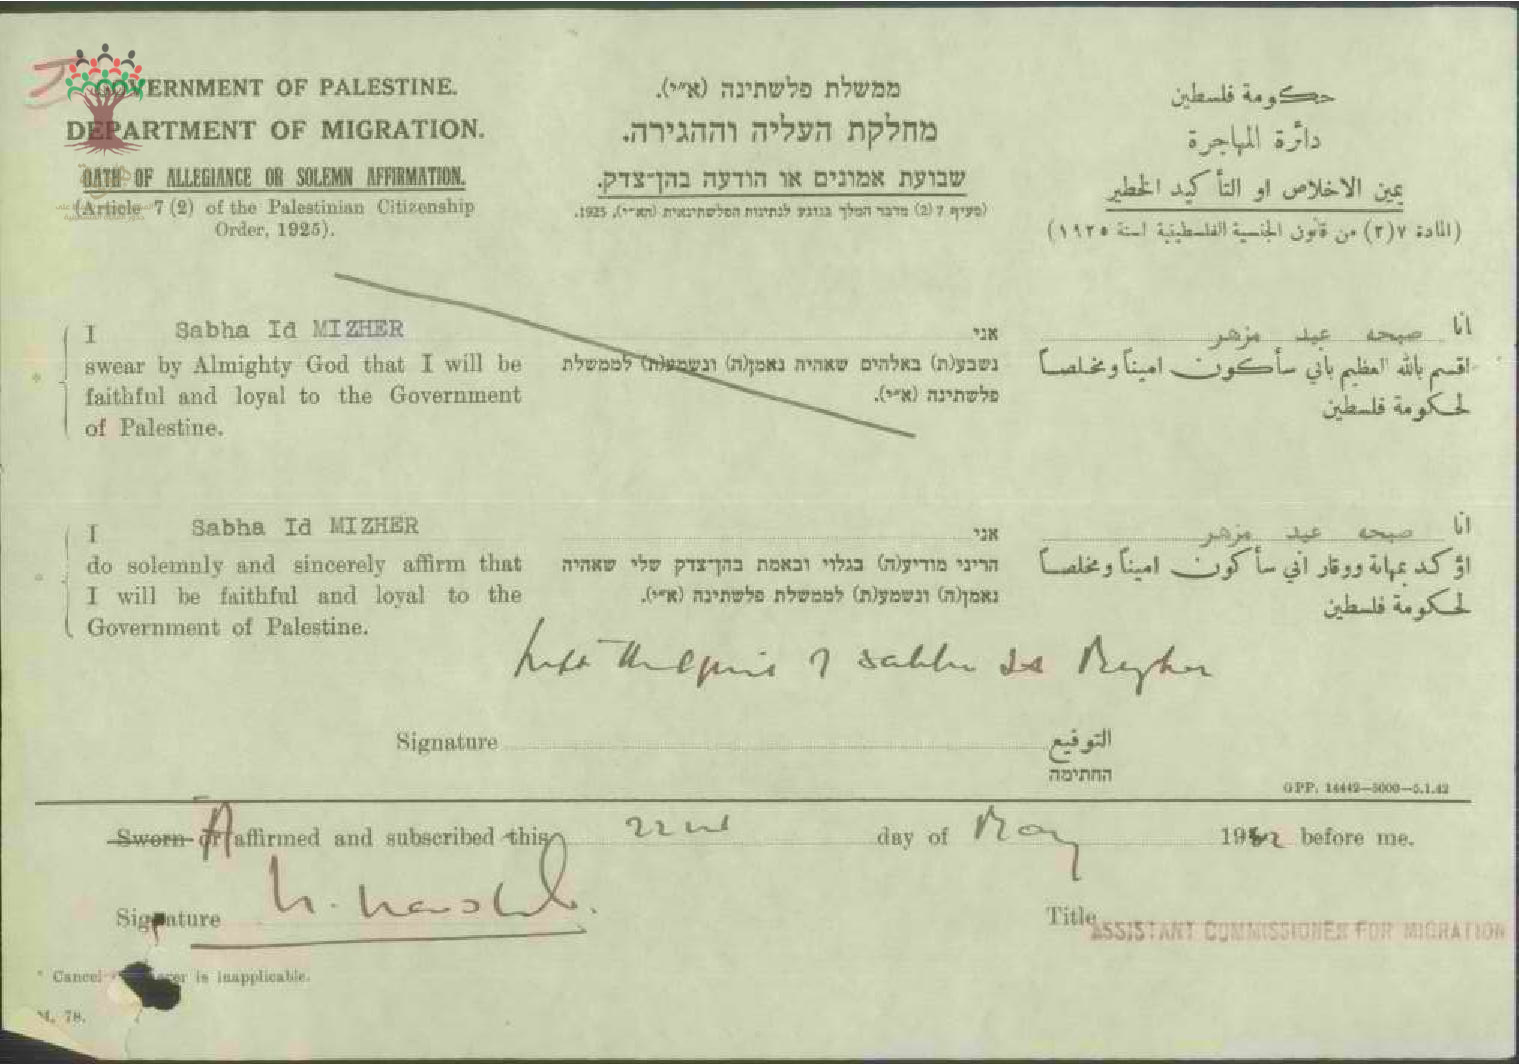 GOVERNMENT OF PALESTINE.
DEPARTMENT OF MIGRATION.
OATH OF ALLEGIANCE OR SOLEMN AFFIRMATION.
(Article 7 (2) of the Palestinian Citizenship
Order, 1925).
ממשלת פלשתינה (א״י).
מחלקת העליה וההגירה.
שבועת אמונים או הודעה בהן־צדק.
(סעיף 7 (2) מדבר המלך בנוגע לנתינות הפלשתינאית (הא״י), 1925.
حكومة فلسطين
دائرة المهاجرة
يمين الاخلاص او التأكيد الخطير
(المادة ٧ (٢) من قانون الجنسية الفلسطينية لسنة ١٩٢٥)
I Sabha Id MIZHER
swear by Almighty God that I will be
faithful and loyal to the Government
of Palestine.
אני
נשבע(ת) באלהים שאהיה נאמן(ה) ונשמע(ת) לממשלת
פלשתינה (א״י).
انا صبحه عيد مزهر
اقسم بالله العظيم باني سأكون اميناً ومخلصاً
لحكومة فلسطين
I Sabha Id MIZHER
do solemnly and sincerely affirm that
I will be faithful and loyal to the
Government of Palestine.
אני
הריני מודיע(ה) בגלוי ובאמת בהן־צדק שלי שאהיה
נאמן(ה) ונשמע(ת) לממשלת פלשתינה (א״י).
انا صبحه عيد مزهر
اؤكد بمهابة ووقار اني سأكون اميناً ومخلصاً
لحكومة فلسطين
Signature التوقيع
החתימה
GPP. 14442—5000—5.1.42
Sworn or affirmed and subscribed this 22nd day of May 1942 before me.
Signature
Title ASSISTANT COMMISSIONER FOR MIGRATION
* Cancel is inapplicable.
M. 78.